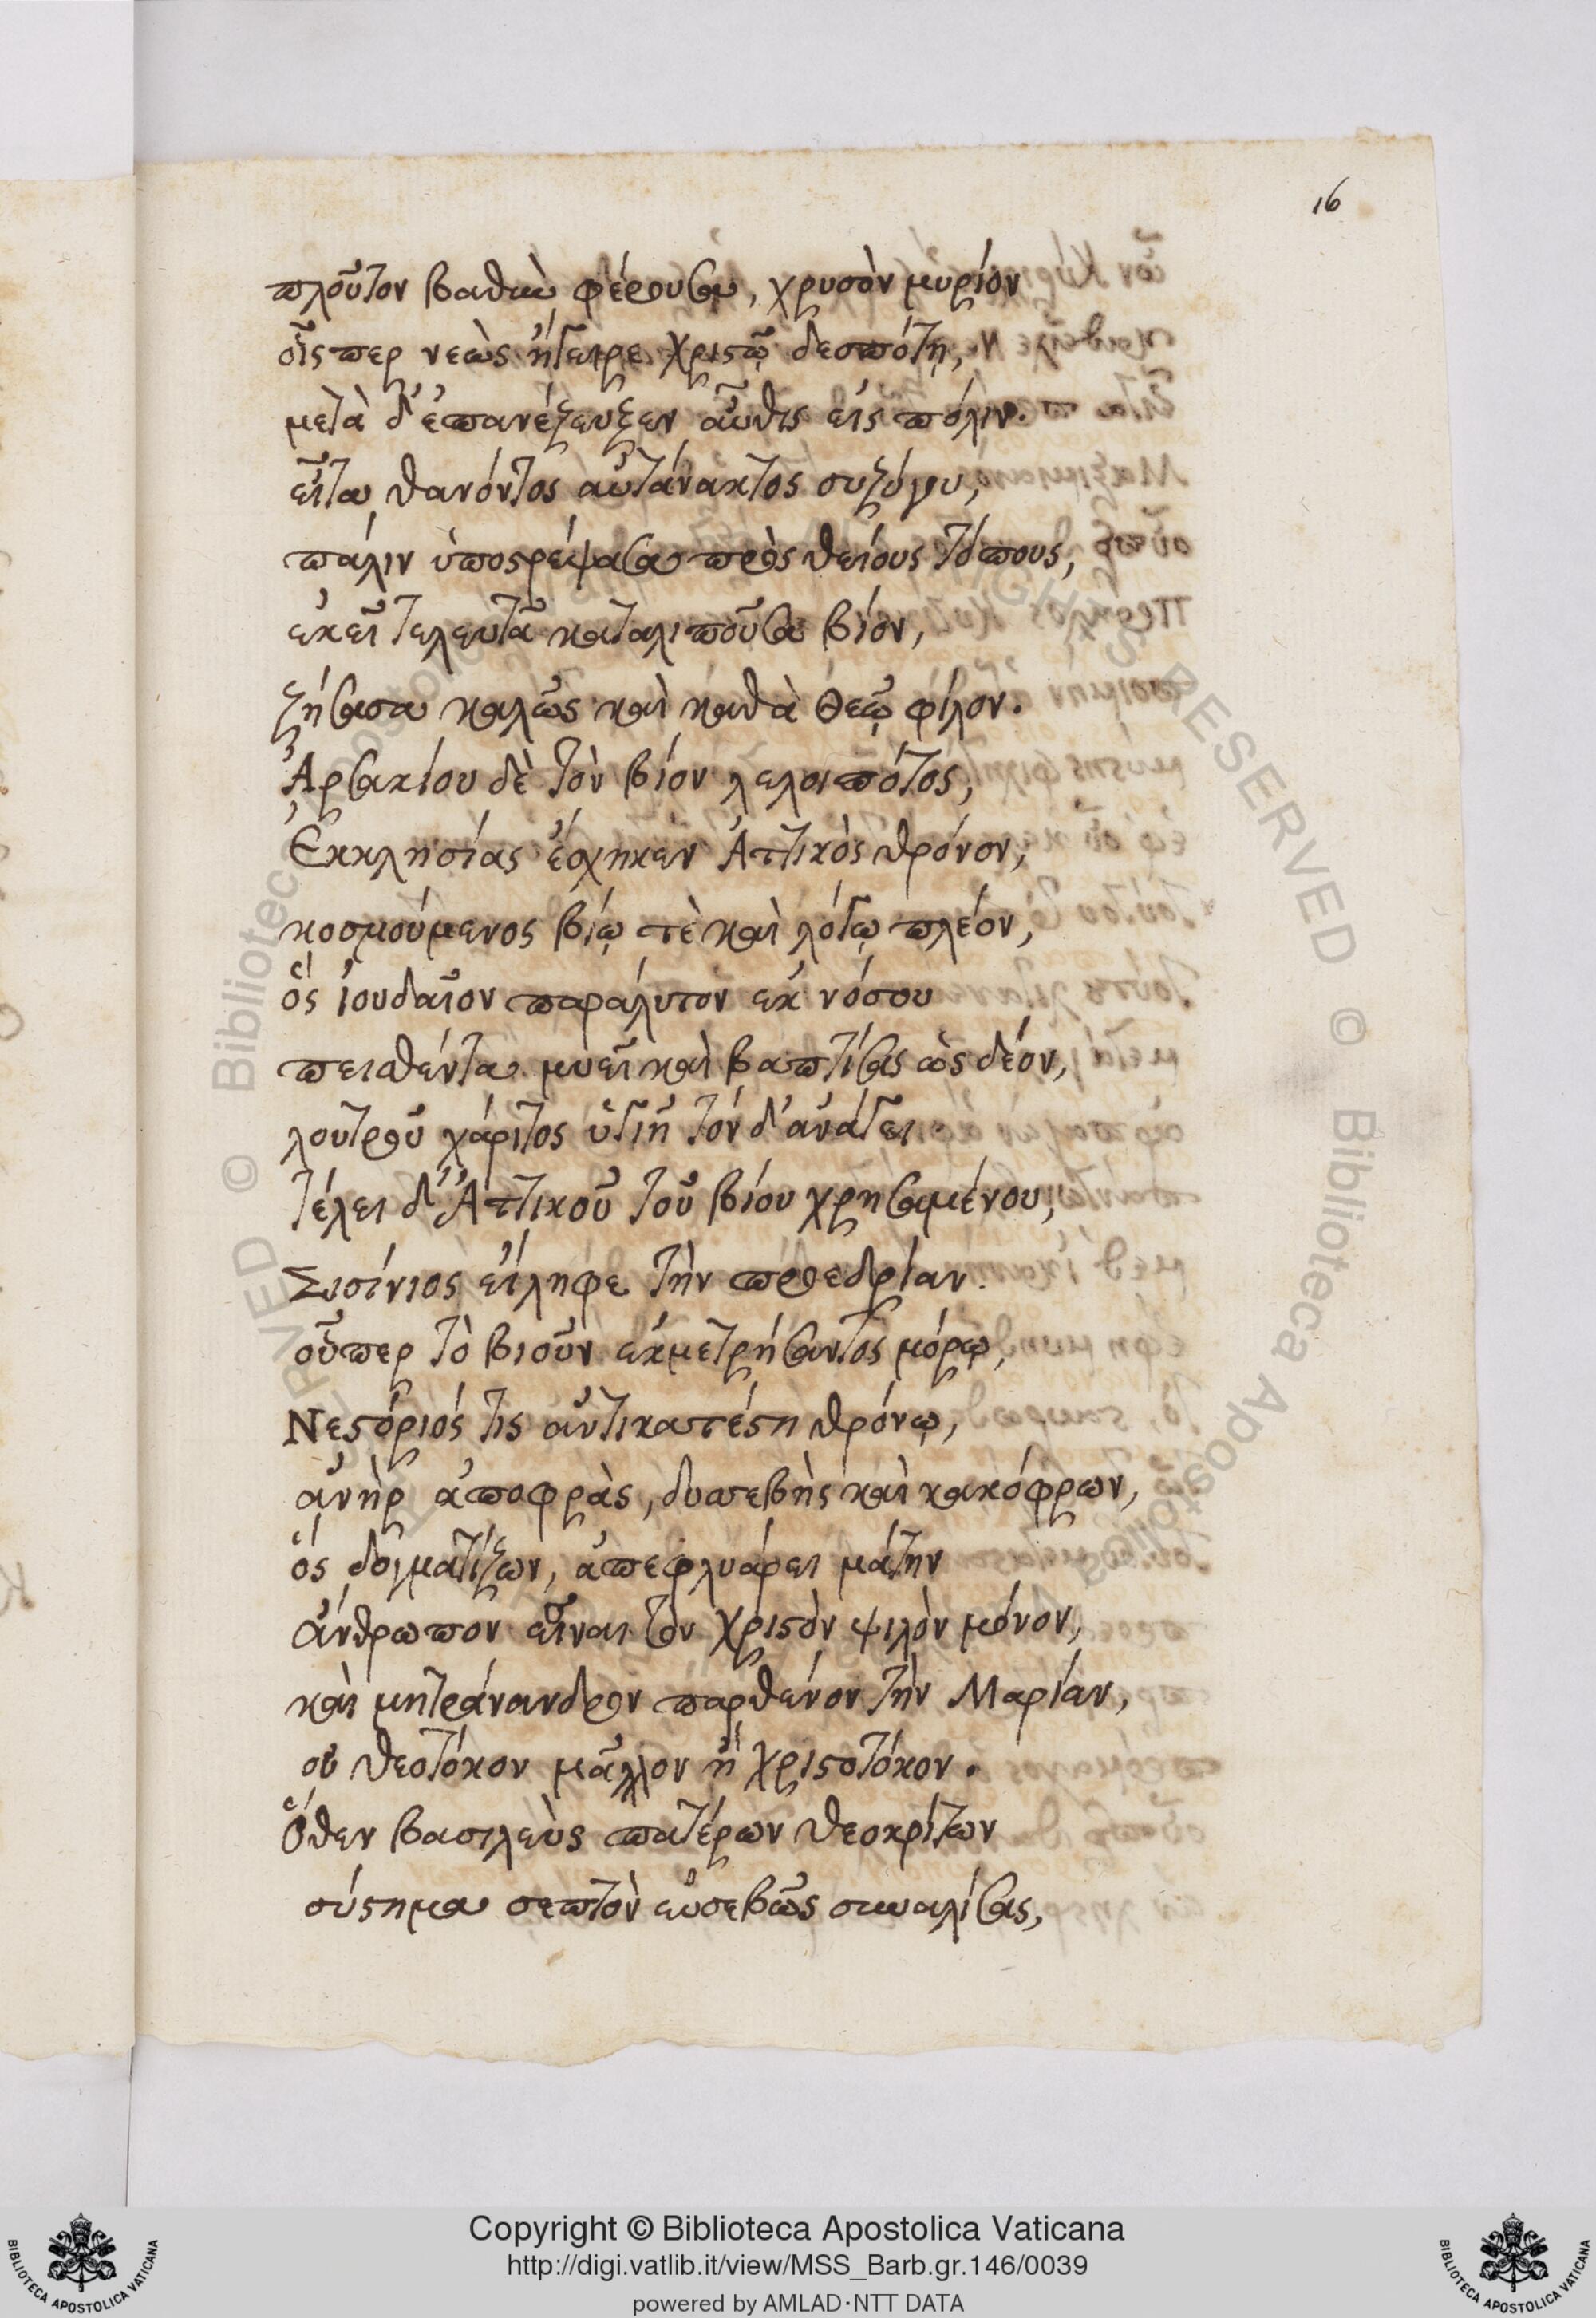 16
πλοῦτον βαθὺν φέρουσα, χρυσὸν μυρίον
οἷς περ νεὼς ἤγειρε χριστῷ δεσπότῃ,
μετὰ δ' ἐπανέζευξεν αὖθις εἰς πόλιν.
εἶτα θανόντος αὐτάνακτος συζύγου,
πάλιν ὑποστρέψασα πρὸς θείους τόπους,
ἐκεῖ τελευτᾶ καταλιποῦσα βίον,
ζήσασα καλῶς καὶ καθὰ Θεῷ φίλον.
Ἀρσακίου δὲ τὸν βίον λελοιπότος,
Ἐκκλησίας ἔσχηκεν Ἀττικὸς θρόνον,
κοσμούμενος βίῳ τὲ καὶ λόγῳ πλέον,
ὅς ἰουδαῖον παράλυτον ἐκ νόσου
πεισθέντα μυεῖ καὶ βαπτίσας ὡς δέον,
λουτροῦ χάριτος ὑγιῆ τόν δ' ἀνάγει
τέλει δ' Ἀττικοῦ τοῦ βίου χρησαμένου,
Σισίνιος εἴληφε τὴν προεδρίαν.
οὗπερ τὸ βιοῦν ἐκμετρήσαντος μόρῳ,
Νεστόριός τις ἀντικατέστη θρόνῳ,
ἀνὴρ ἀποφρὰς, δυσεβὴς καὶ κακόφρων,
ὅς δογματίζων, ἀπεφλυάρει μάτην
ἄνθρωπον εἶναι τὸν χριστὸν ψιλὸν μόνον,
καὶ μητράνανδρον παρθένον τὴν Μαρίαν,
οὐ θεοτόκον μᾶλλον ἢ χριστοτόκον.
Ὅθεν βασιλεὺς πατέρων θεοκρίτων
σύστημα σεπτὸν εὐσεβῶς συναλίσας,
Copyright © Biblioteca Apostolica Vaticana
http://digi.vatlib.it/view/MSS_Barb.gr.146/0039
powered by AMLAD·NTT DATA
BIBLIOTECA APOSTOLICA VATICANA
BIBLIOTECA APOSTOLICA VATICANA